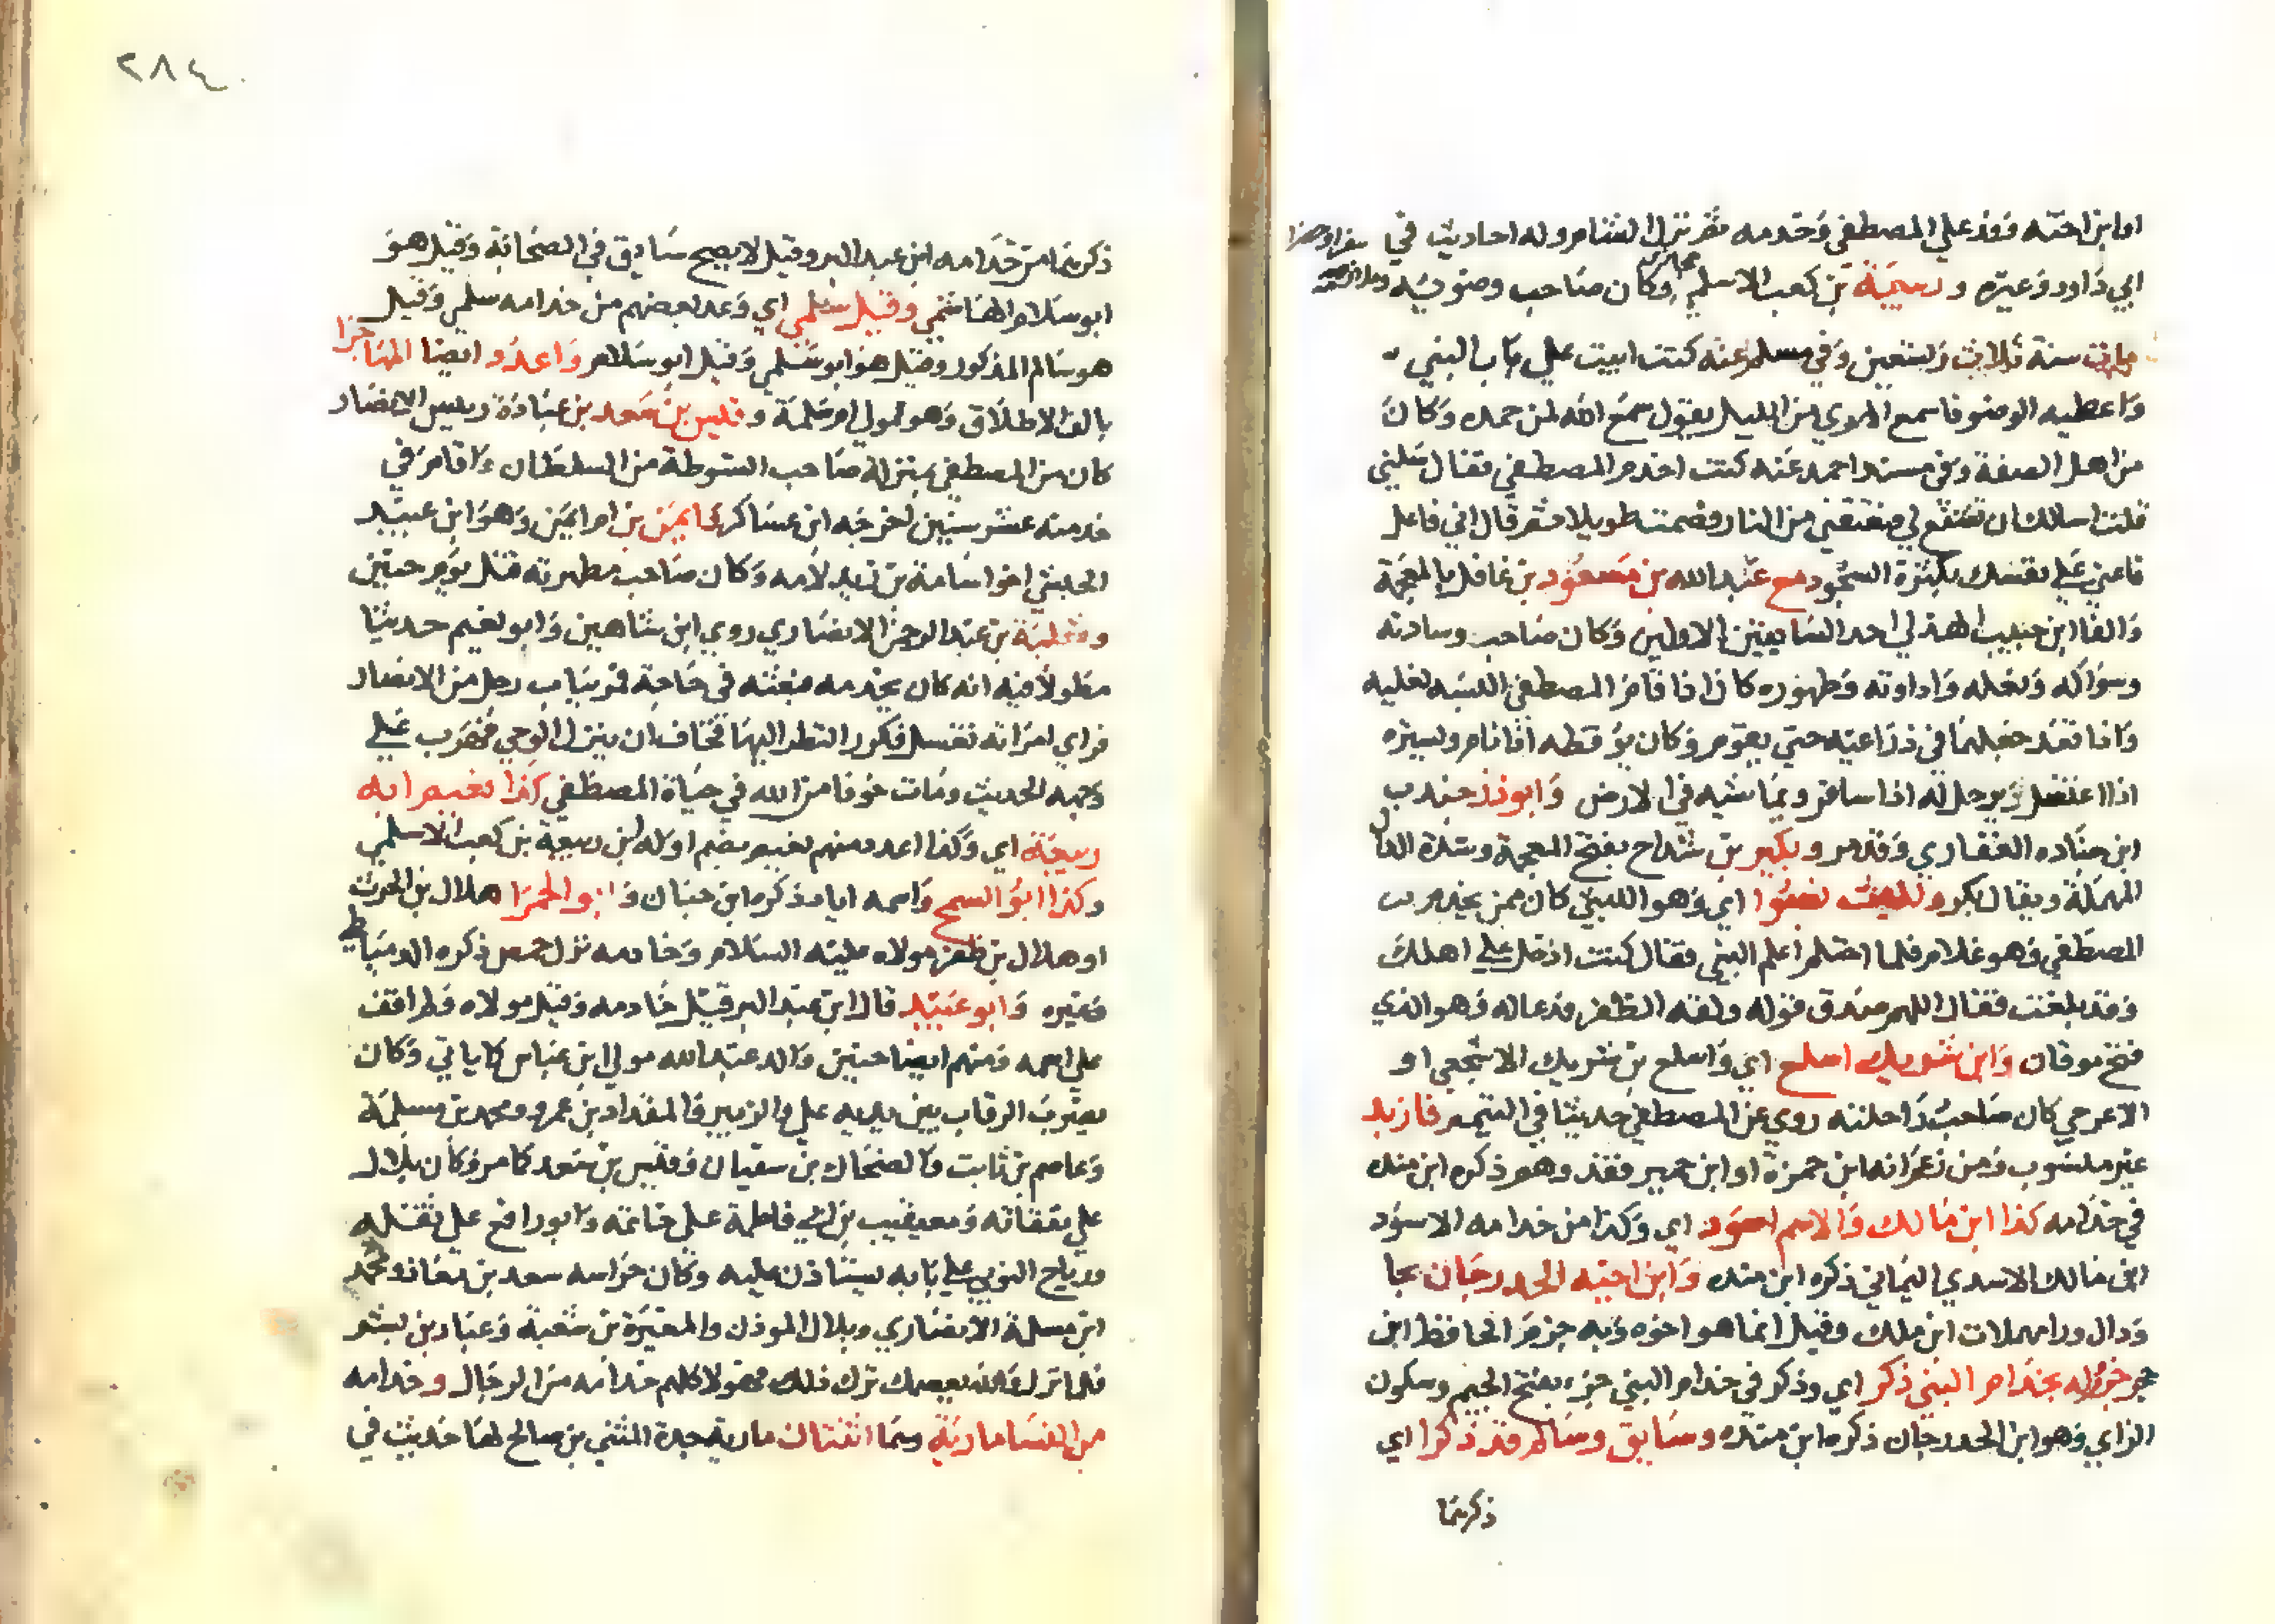 او ابن اخته وفد علي المصطفي وخدمه ثم نزل الشام وله احاديث في
ابي داود وغيره وربيعة بن كعب الاسلمي وكان صاحب وضوئه
مات سنة ثلاث وستين وفي مسلم عنه كنت ابيت علي باب النبي
واعطيه الوضو فاسمع الهوي من الليل يقول سمع الله لمن حمده وكان
من اهل الصفة وفي مسند احمد عنه كنت اخدم المصطفي فقال سلني
قلت اسالك ان تشفع لي فيعتقني من النار فصمت طويلا ثم قال اني فاعل
فاعني علي نفسك بكثرة السجود مع عبد الله بن مسعود بن غافل بالمعجمة
والفا ابن حبيب الهذلي احد السابقين الاولين وكان صاحب وسادته
وسواكه ونعله واداوته وطهوره كان اذا قام المصطفي البسه نعليه
واذا قعد جعلهما في ذراعيه حتي يقوم وكان يوقظه اذا نام ويستره
اذا اغتسل ويرحل له اذا سافر ويماشيه في الارض وابوذر جندب
ابن جناده الغفاري وقد مر وبكير بن شداخ بفتح المعجمة وشدة الدال
المهملة ويقال بكر ولليث نسبوا اي وهو الليثي كان ممن يخدم
المصطفي وهو غلام فلما احتلم اعلم النبي فقال كنت ادخل علي اهلك
وقد بلغت فقال اللهم صدق قوله ولقه الظفر فدعا له وهو الذي
فتح موقان وابن شريك اسلع اي واسلع بن شريك الاشجعي او
الاعرجي كان صاحب راحلته روي عن المصطفي حديثا في التيمم فازيد
غير منسوب ومن زعم انه ابن حمزة او ابن حمير فقد وهم ذكره ابن منده
في خدامه كذا ابن مالك والاسم اسود اي وكذا من خدامه الاسود
ابن مالك الاسدي اليماني ذكره ابن منده وابن اخيه الحدرجان بحا
ودال ورا مهملات ابن ملك وقيل انما هو اخوه وبه جزم الحافظ ابن
حجر جزء له بخدام النبي ذكر اي وذكر في خدام النبي جزء بفتح الجيم وسكون
الزاي وهو ابن الحدرجان ذكره ابن منده وسابق وسالم قد ذكرا اي
ذكرهما
٢٨٤
ذكرهما من خدامه ابن عبد البر وقيل لا يصح سابق في الصحابة وقيل هو
ابو سلام الهاشمي وقيل سلمي اي وعد بعضهم من خدامه سلمي وقيل
هو سالم المذكور وقيل هو ابو سلمي وقيل ابو سلام واعدد ايضا المهاجرا
بالف الاطلاق وهو مولي ام سلمة وقيس بن سعد بن عبادة رييس الانصار
كان من المصطفي بمنزلة صاحب الشرطة من السلطان واقام في
خدمته عشر سنين اخرجه ابن عساكر كذا ايمن بن ام ايمن وهو ابن عبيد
الحبشي اخو اسامة بن زيد لامه وكان صاحب مطهرته قتل يوم حنين
وثعلبة بن عبد الرحمن الانصاري روي ابن شاهين وابو نعيم حديثا
مطولا فيه انه كان يخدمه فبعثه في حاجة فمر بباب رجل من الانصار
فراي امراته تغتسل فكرر النظر اليها فخاف ان ينزل الوحي فهرب علي
وجهه الحديث ومات خوفا من الله في حياة المصطفي كذا نعيم ابه
ربيعة اي وكذا اعدد منهم نعيم بضم اوله ابن ربيعة بن كعب الاسلمي
وكذا ابو السمح واسمه اياد ذكره ابن حبان وابو الحمرا هلال بن الحرث
او هلال بن ظفر مولاه عليه السلام وخادمه نزل حمص ذكره الدمياطي
وغيره وابو عبيد قال ابن عبد البر قيل خادمه وقيل مولاه ولم اقف
علي اسمه ومنهم ايضا حنين والد عبد الله مولي ابن عباس كما ياتي وكان
يضرب الرقاب بين يديه علي والزبير والمقداد بن عمرو ومحمد بن مسلمة
وعاصم بن ثابت والضحاك بن سفيان وقيس بن سعد كما مر وكان بلال
علي نفقاته ومعيقيب بن ابي فاطمة علي خاتمه وابو رافع علي ثقله
ورباح النوبي علي بابه يستاذن عليه وكان حراسه سعد بن معاذ ومحمد
ابن مسلمة الانصاري وبلال الموذن والمغيرة بن شعبة وعباد بن بشر
فلما نزل والله يعصمك ترك ذلك فهولا كلهم خدامه من الرجال وخدامه
من النسا مارية وسما اثنتان مارية جدة المثني بن صالح لها حديث في